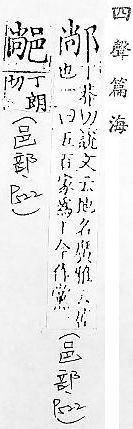 四聲篇海
䣊丁恭切說文云地名廣雅云居
也一曰五百家爲䣊今作黨
(邑部P522)
䣣丁朗切
(邑部P522)